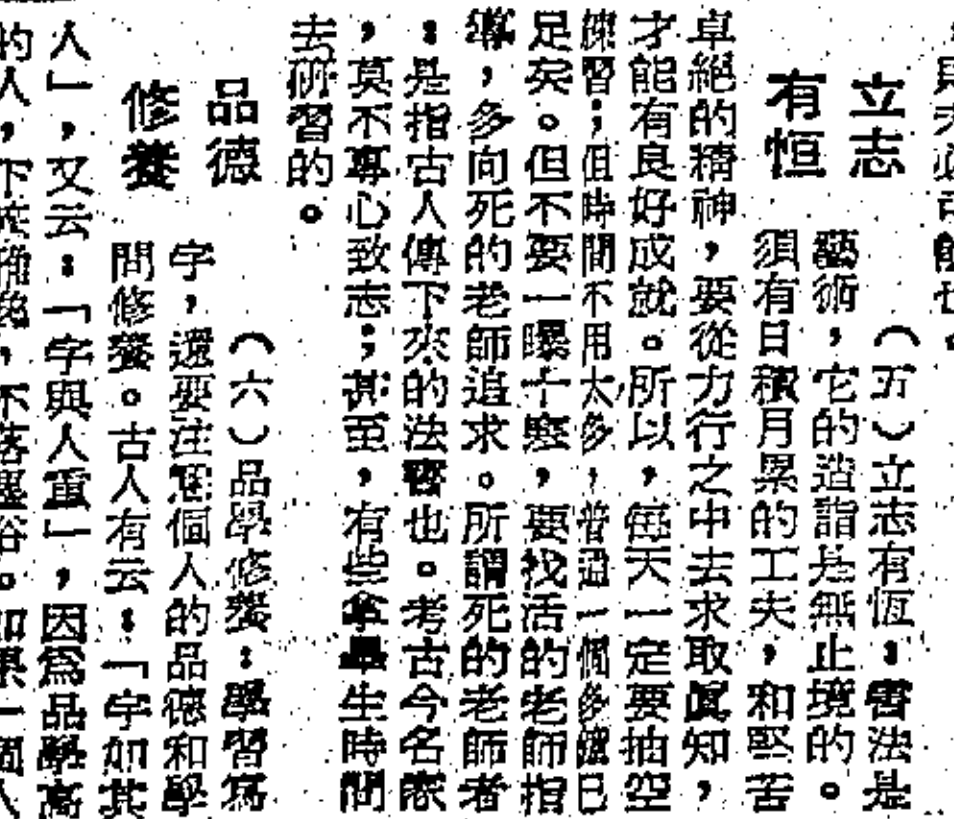 則未必可能也。
立志
有恒
（五）立志有恆：書法是
藝術，它的造詣是無止境的。
須有日積月累的工夫，和堅苦
卓絕的精神，要從力行之中去求取眞知，
才能有良好成就。所以，每天一定要抽空
練習；但時間不用太多，普通一個多鐘已
足矣。但不要一曝十寒，要找活的老師指
導，多向死的老師追求。所謂死的老師者
：是指古人傳下來的法書也。考古今名家
，莫不專心致志；甚至，有些拿畢生時間
去研習的。
品德
修養
（六）品學修養：學習寫
字，還要注意個人的品德和學
問修養。古人有云：「字如其
人」，又云：「字與人重」，因爲品學高
的人，下筆雅逸，不落塵俗。如果一個人